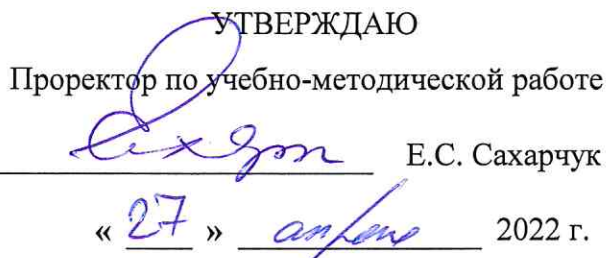 УТВЕРЖДАЮ
Проректор по учебно-методической работе
Е.С. Сахарчук
« 27 » апреля 2022 г.